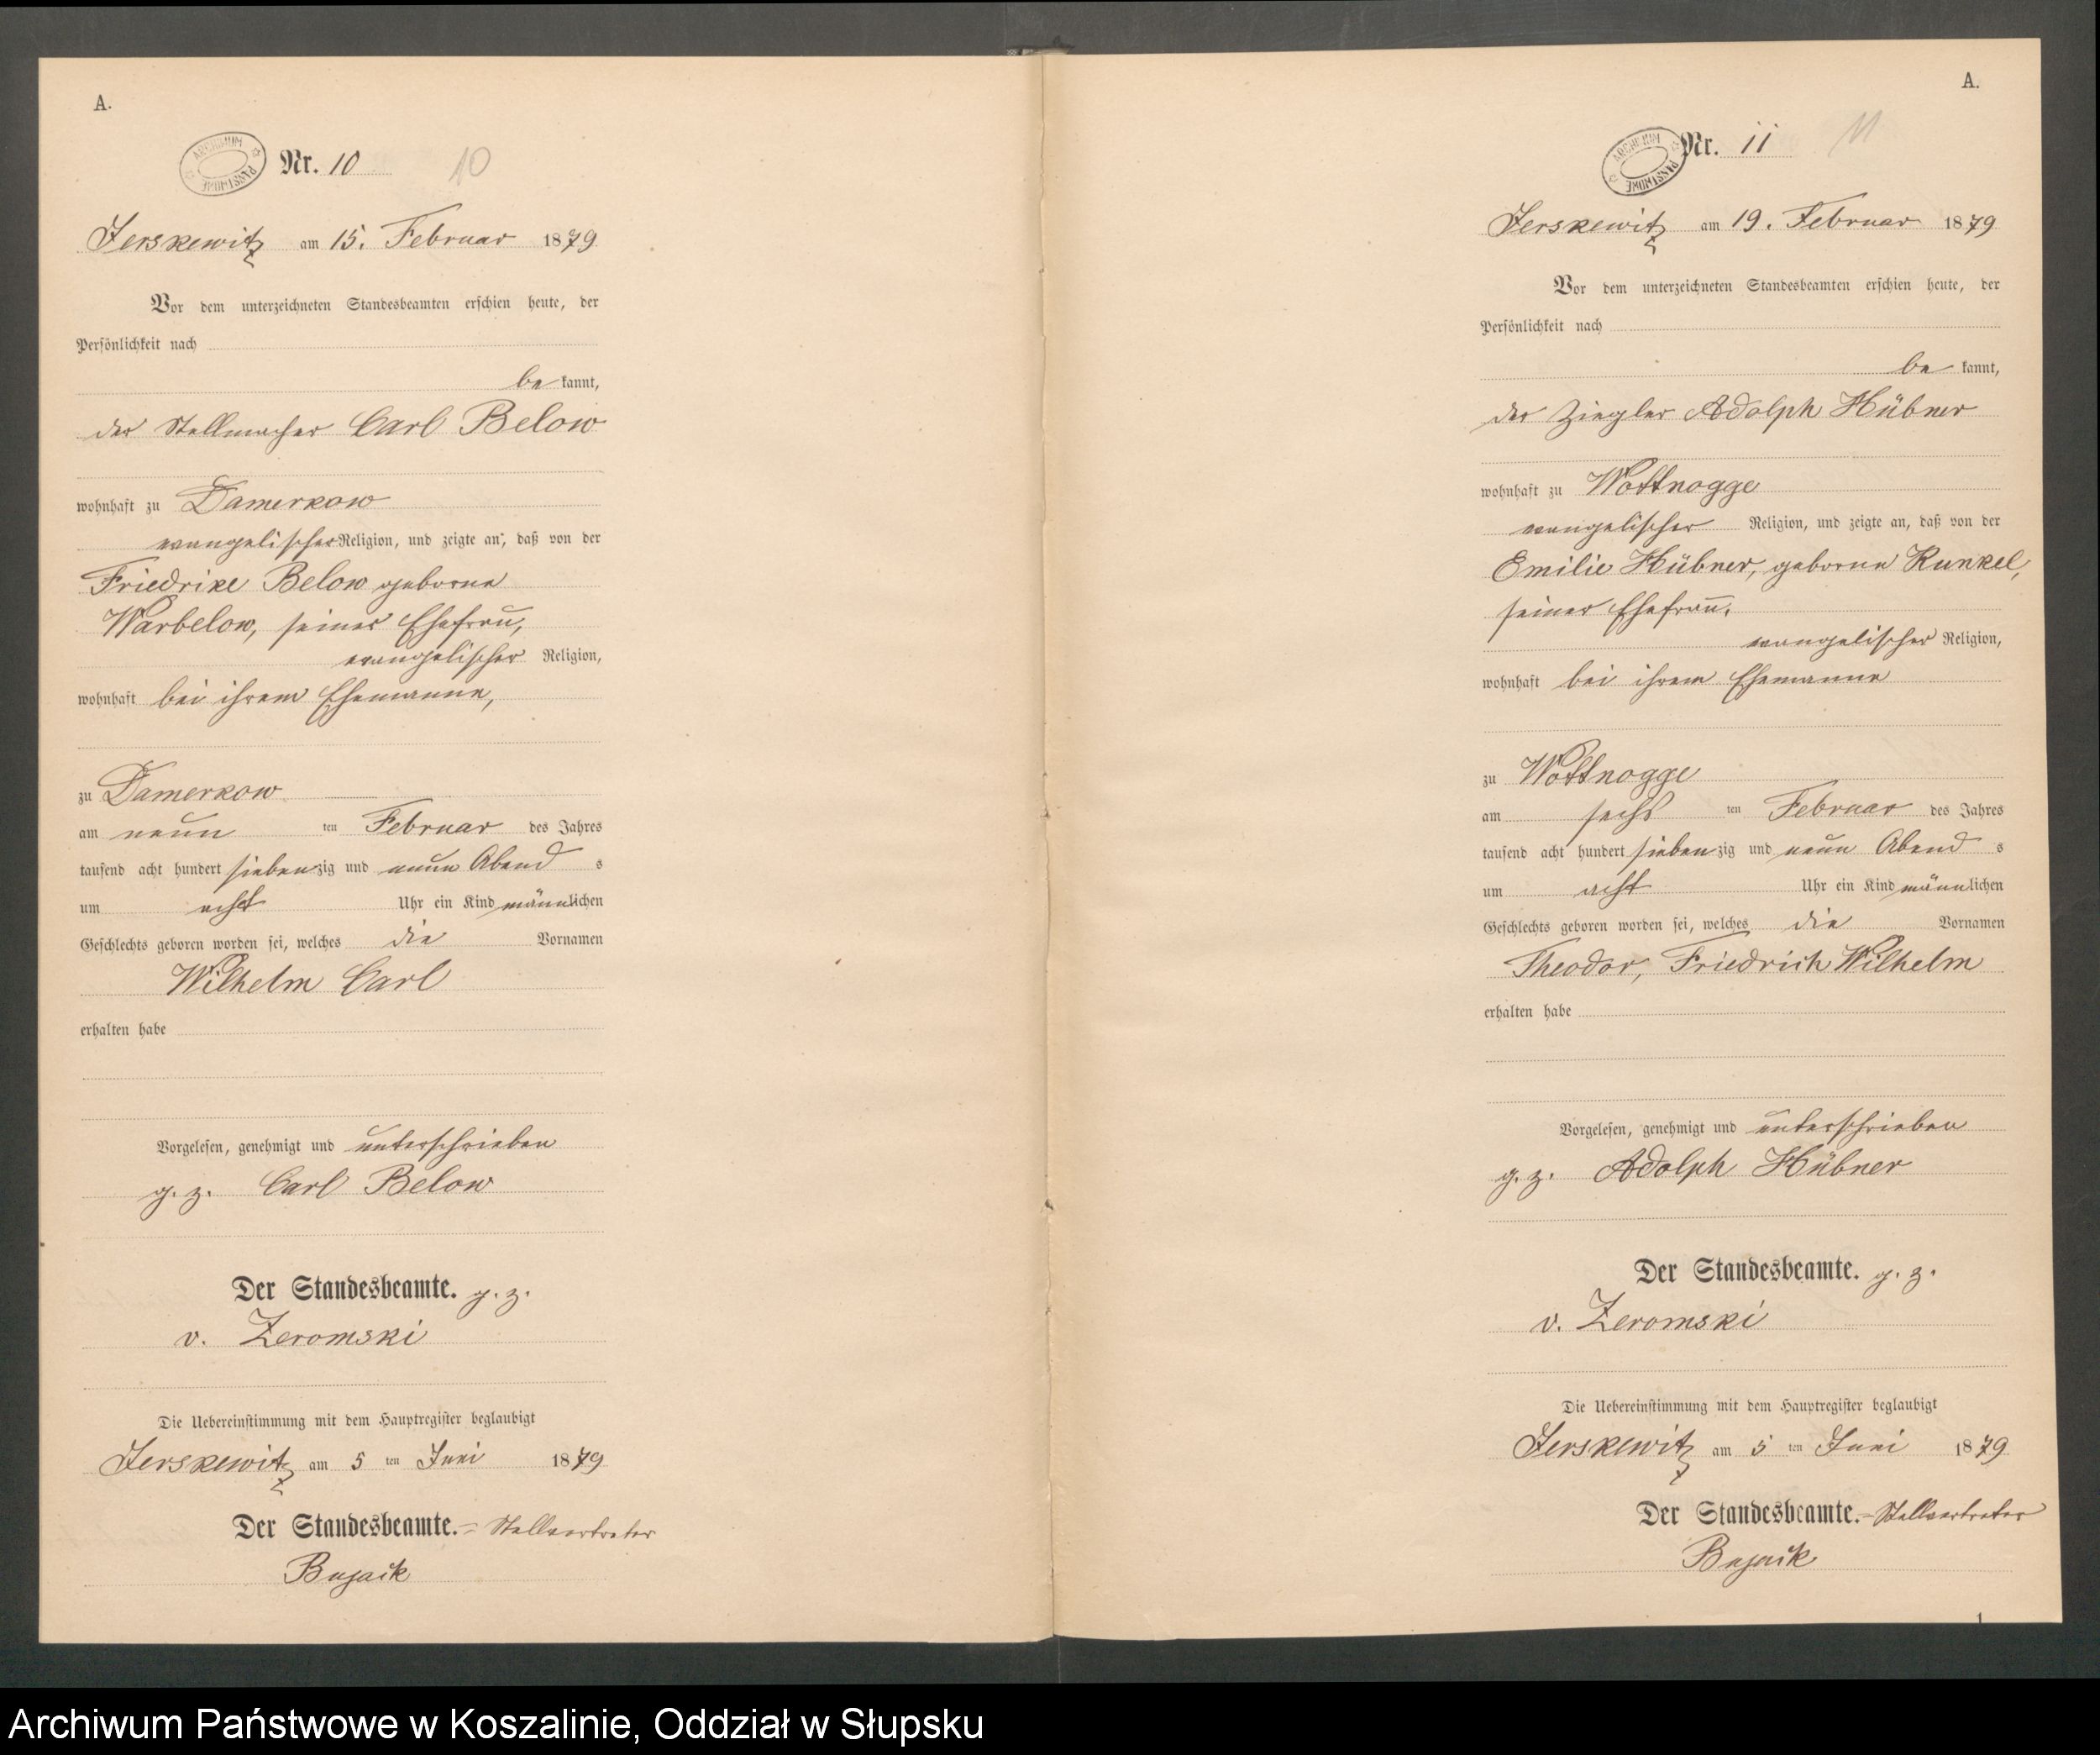 A.
ARCHIWUM PAŃSTWOWE
Nr. 10 10
Jerskewitz am 15. Februar 1879
Vor dem unterzeichneten Standesbeamten erschien heute, der
Persönlichkeit nach
be kannt,
der Stellmacher Carl Below
wohnhaft zu Damerkow
evangelischer Religion, und zeigte an, daß von der
Friedrike Below geborne
Warbelow, seiner Ehefrau,
evangelischer Religion,
wohnhaft bei ihrem Ehemanne,
zu Damerkow
am neun ten Februar des Jahres
tausend acht hundert sieben zig und neun Abend s
um acht Uhr ein Kind männlichen
Geschlechts geboren worden sei, welches die Vornamen
Wilhelm Carl
erhalten habe
Vorgelesen, genehmigt und unterschrieben
g. z. Carl Below
Der Standesbeamte. g. z.
v. Zeromski
Die Uebereinstimmung mit dem Hauptregister beglaubigt
Jerskewitz am 5 ten Juni 1879
Der Standesbeamte.= Stellvertreter
Bujack
A.
ARCHIWUM PAŃSTWOWE
Nr. 11 11
Jerskewitz am 19. Februar 1879
Vor dem unterzeichneten Standesbeamten erschien heute, der
Persönlichkeit nach
be kannt,
der Ziegler Adolph Hübner
wohnhaft zu Wottnogge
evangelischer Religion, und zeigte an, daß von der
Emilie Hübner, geborne Kunkel,
seiner Ehefrau,
evangelischer Religion,
wohnhaft bei ihrem Ehemanne
zu Wottnogge
am sechs ten Februar des Jahres
tausend acht hundert sieben zig und neun Abend s
um acht Uhr ein Kind männlichen
Geschlechts geboren worden sei, welches die Vornamen
Theodor, Friedrich Wilhelm
erhalten habe
Vorgelesen, genehmigt und unterschrieben
g. z. Adolph Hübner
Der Standesbeamte. g. z.
v. Zeromski
Die Uebereinstimmung mit dem Hauptregister beglaubigt
Jerskewitz am 5 ten Juni 1879
Der Standesbeamte.= Stellvertreter
Bujack
1
Archiwum Państwowe w Koszalinie, Oddział w Słupsku